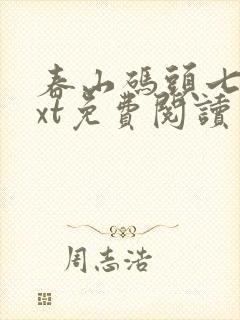 春山碼頭七
xt免費閱讀
周志浩